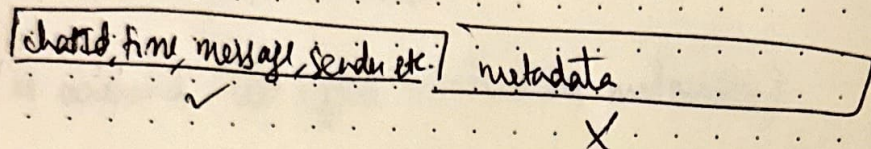 chatId, time, message, sender etc. metadata
✓
X